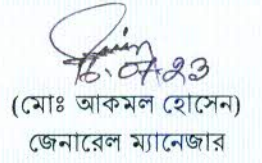 16.07.23
(মোঃ আকমল হোসেন)
জেনারেল ম্যানেজার